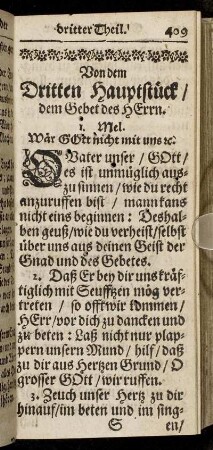 dritter Theil. 409
Von dem
Dritten Hauptstück /
dem Gebet des HErrn.
1. Mel.
Wär GOtt nicht mit uns ꝛc.
O Vater unser / GOtt /
es ist unmüglich aus-
zusinnen / wie du recht
anzuruffen bist / mann kans
nicht eins beginnen: Deshal-
ben geuß / wie du verheist / selbst
über uns aus deinen Geist der
Gnad und des Gebetes.
2. Daß Er bey dir uns kräf-
tiglich mit Seufftzen mög ver-
treten / so offt wir kommen /
HErr / vor dich zu dancken und
zu beten: Laß nicht nur plap-
pern unsern Mund / hilf / daß
zu dir aus Hertzen Grund / O
grosser GOtt / wir ruffen.
3. Zeuch unser Hertz zu dir
hinauf / im beten und im sing-
S en /